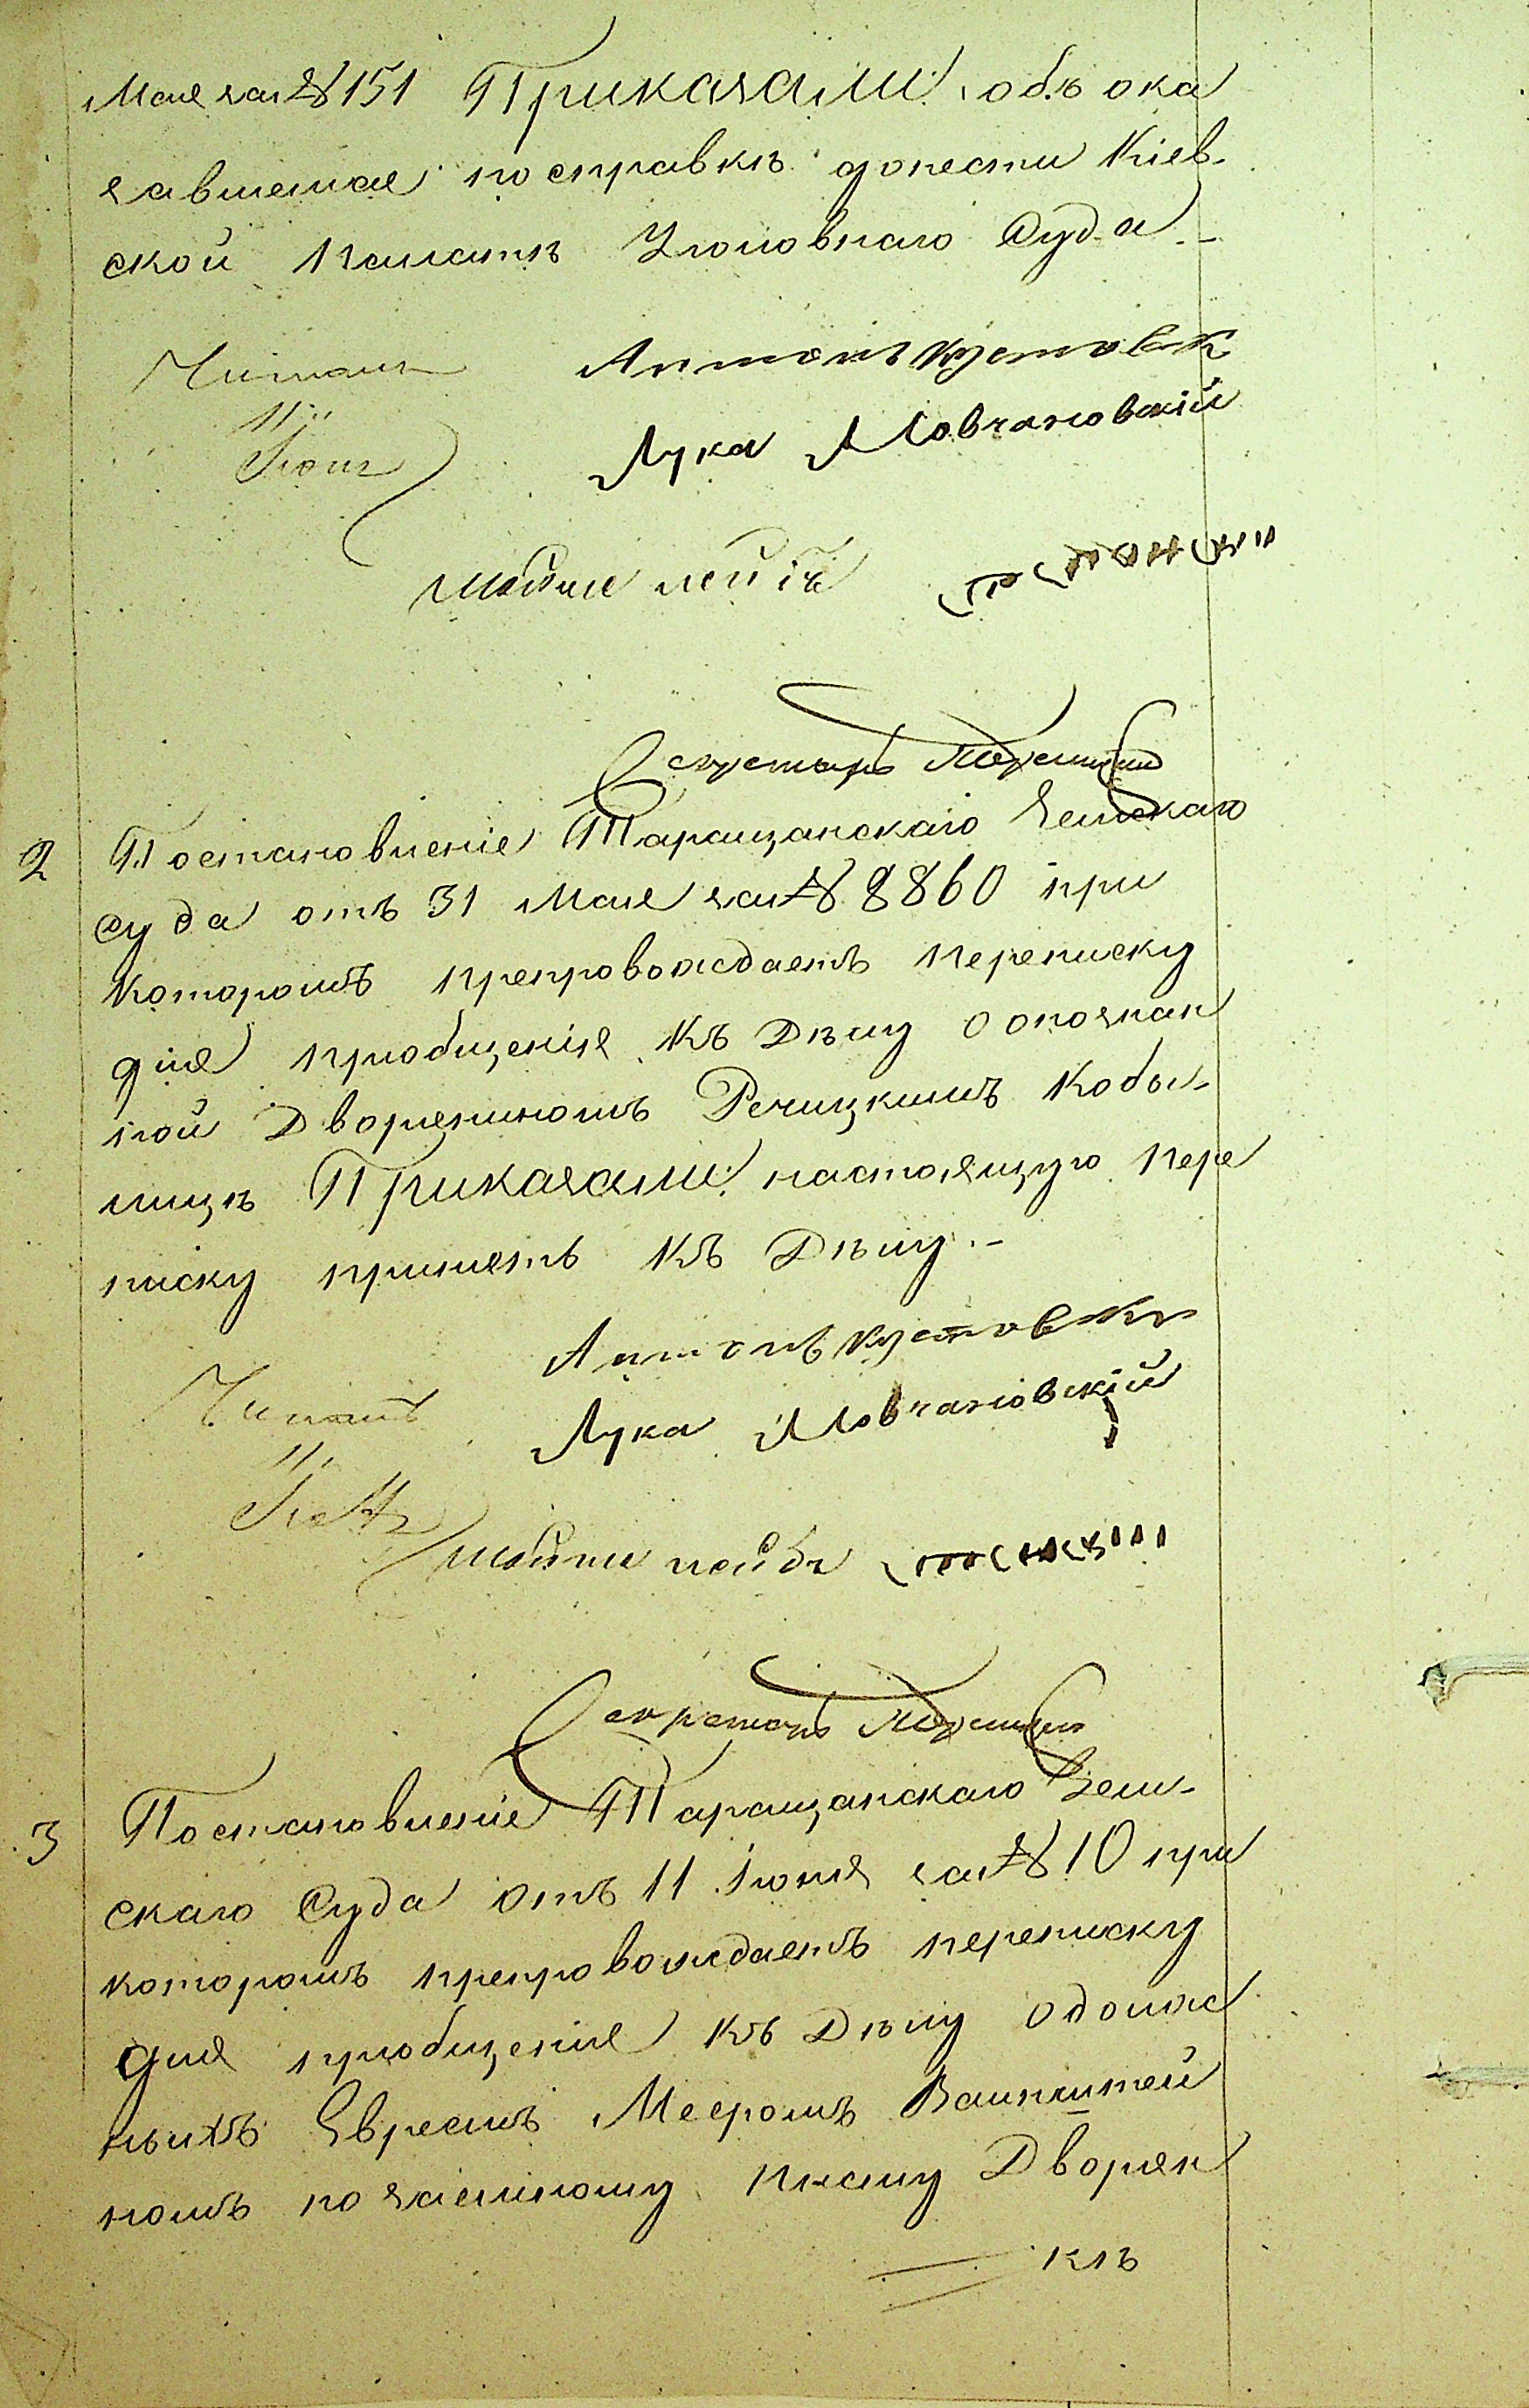 Мая за № 151 Приказали: объ ока
завшемся по справкѣ донести Кіев-
ской Палатѣ Уголовнаго Суда.-
Читалъ Антонъ Кустовск
Лука Мовчановскій
Секретарь
2 Постановленіе Таращанскаго Земскаго
Суда отъ 31 Мая за № 8860 при
которомъ препровождаетъ переписку
для пріобщенія къ Дѣлу о опознан
ной Дворяниномъ Речицкимъ Кобы-
лицѣ Приказали: настоящую пере
писку пріняпь къ Дѣлу.-
Антонъ Кустовск
Читалъ Лука Мовчановскій
Секретарь
3 Постановленіе Таращанскаго Зем-
скаго Суда отъ 11 Іюня за № 10 при
которомъ препровождаетъ переписку
для пріобщенія къ Дѣлу о долж
ныхъ Евреемъ Мееромъ
номъ по заемному писму Дворян
кѣ